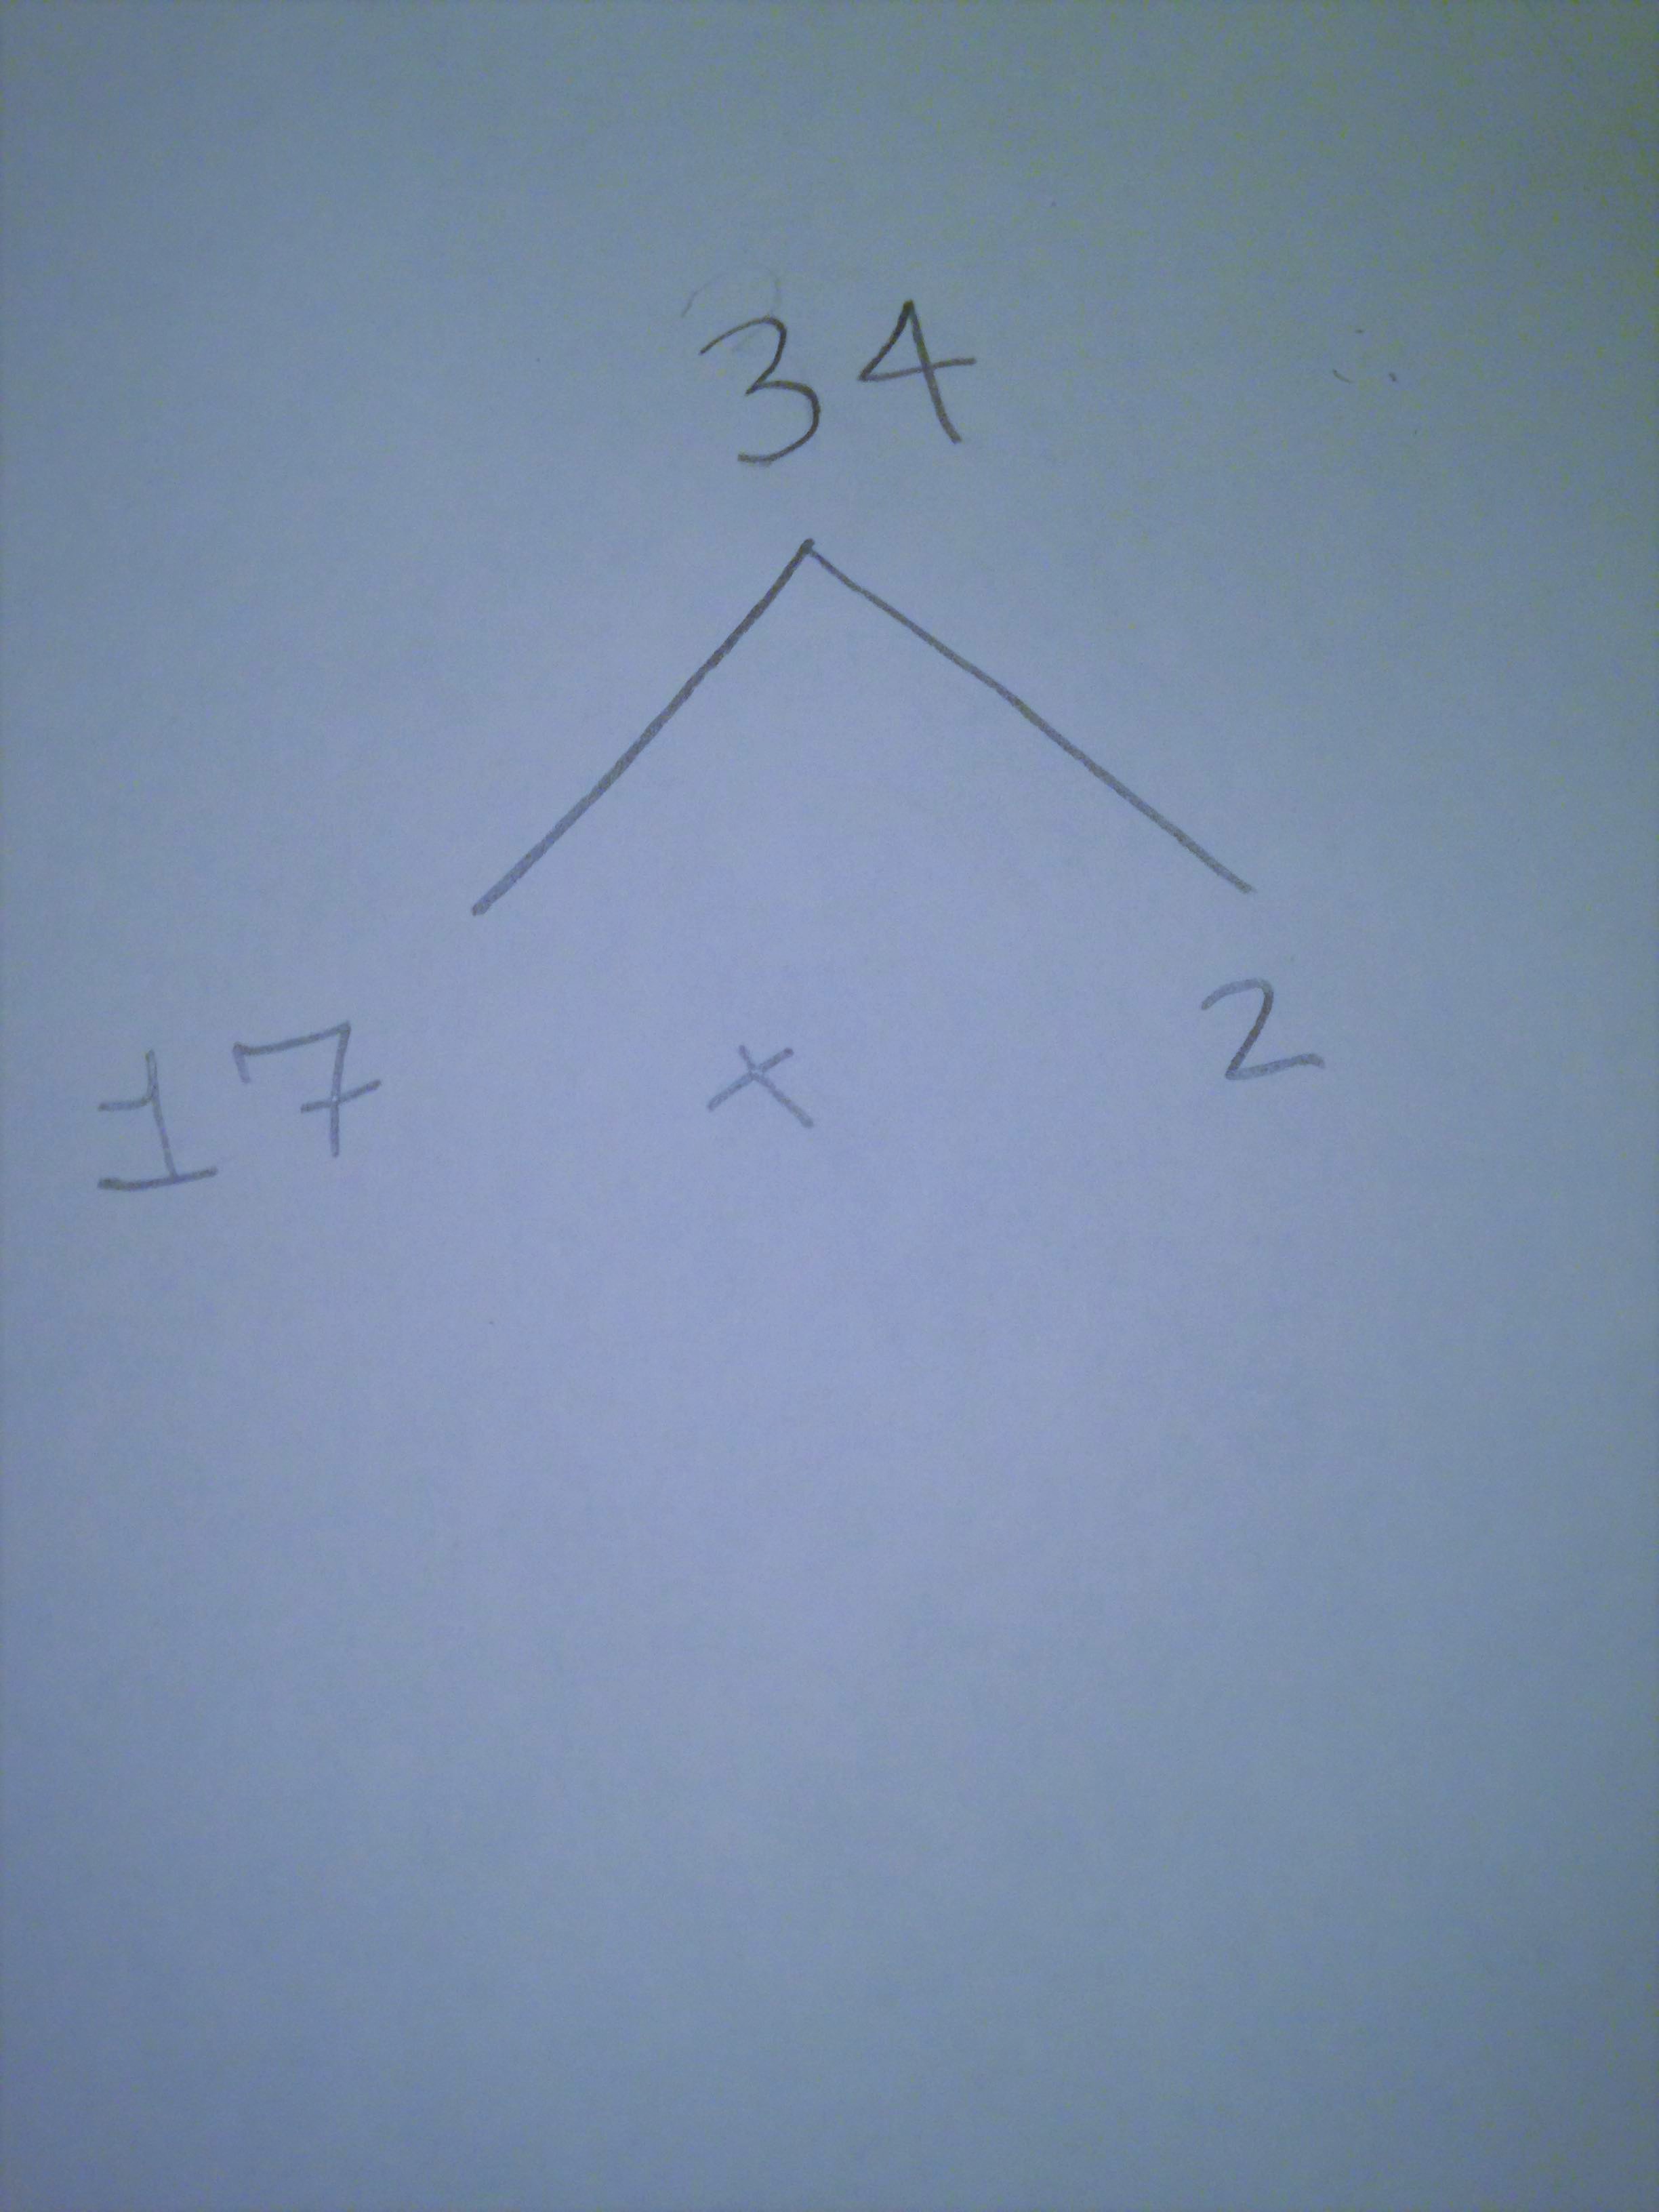 34
17 x 2